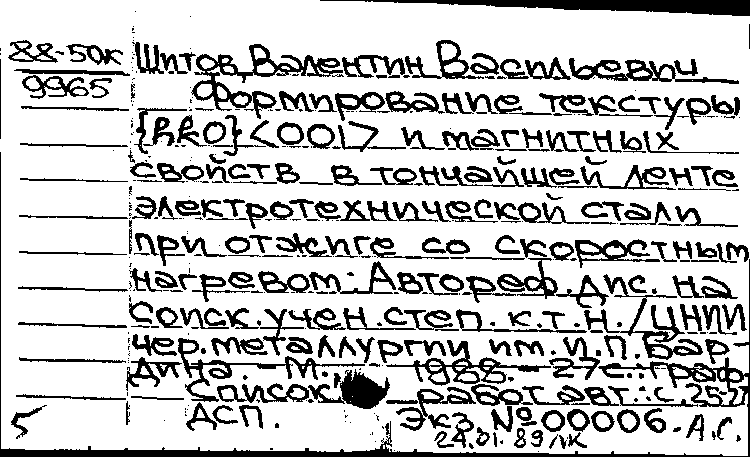 88-50к Шитов, Валентин Васильевич.
9965 Формирование текстуры
{hkO}<001> и магнитных
свойств в тончайшей ленте
электротехнической стали
при отжиге со скоростным
нагревом: Автореф. дис. на
соиск. учен. степ. к.т.н. / ЦНИИ
чер. металлургии им. И.П. Бар-
дина. - М., 1988. - 27 с.: граф.
Список работ авт.: с. 25-27
ДСП. Экз. № 00006. А.С.
5 24.01.89 ЛК